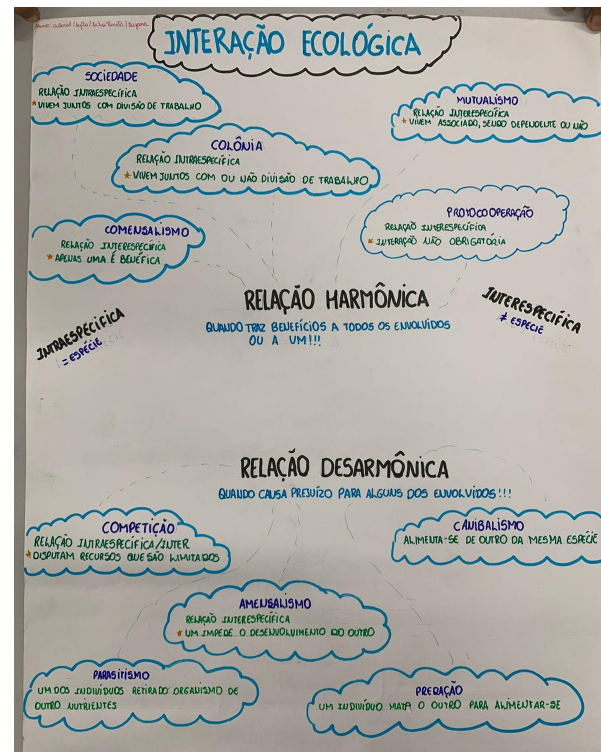 INTERAÇÃO ECOLÓGICA
SOCIEDADE
RELAÇÃO INTRAESPECÍFICA
* VIVEM JUNTOS COM DIVISÃO DE TRABALHO
MUTUALISMO
RELAÇÃO INTERESPECÍFICA
* VIVEM ASSOCIADO, SENDO DEPENDENTE OU NÃO
COLÔNIA
RELAÇÃO INTRAESPECÍFICA
* VIVEM JUNTOS COM OU NÃO DIVISÃO DE TRABALHO
PROTOCOOPERAÇÃO
RELAÇÃO INTERESPECÍFICA
* INTERAÇÃO NÃO OBRIGATÓRIA
COMENSALISMO
RELAÇÃO INTERESPECÍFICA
* APENAS UMA É BENÉFICA
RELAÇÃO HARMÔNICA
QUANDO TRAZ BENEFÍCIOS A TODOS OS ENVOLVIDOS
OU A UM!!!
INTRAESPÉCIFICA
= ESPÉCIE
INTERESPECÍFICA
≠ ESPÉCIE
RELAÇÃO DESARMÔNICA
QUANDO CAUSA PREJUÍZO PARA ALGUNS DOS ENVOLVIDOS!!!
COMPETIÇÃO
RELAÇÃO INTRAESPECÍFICA/INTER
* DISPUTAM RECURSOS QUE SÃO LIMITADOS
CANIBALISMO
ALIMENTA-SE DE OUTRO DA MESMA ESPÉCIE
AMENSALISMO
RELAÇÃO INTERESPECÍFICA
* UM IMPEDE O DESENVOLVIMENTO DO OUTRO
PARASITISMO
UM DOS INDIVÍDUOS RETIRA DO ORGANISMO DE
OUTRO NUTRIENTES
PREDAÇÃO
UM INDIVÍDUO MATA O OUTRO PARA ALIMENTAR-SE